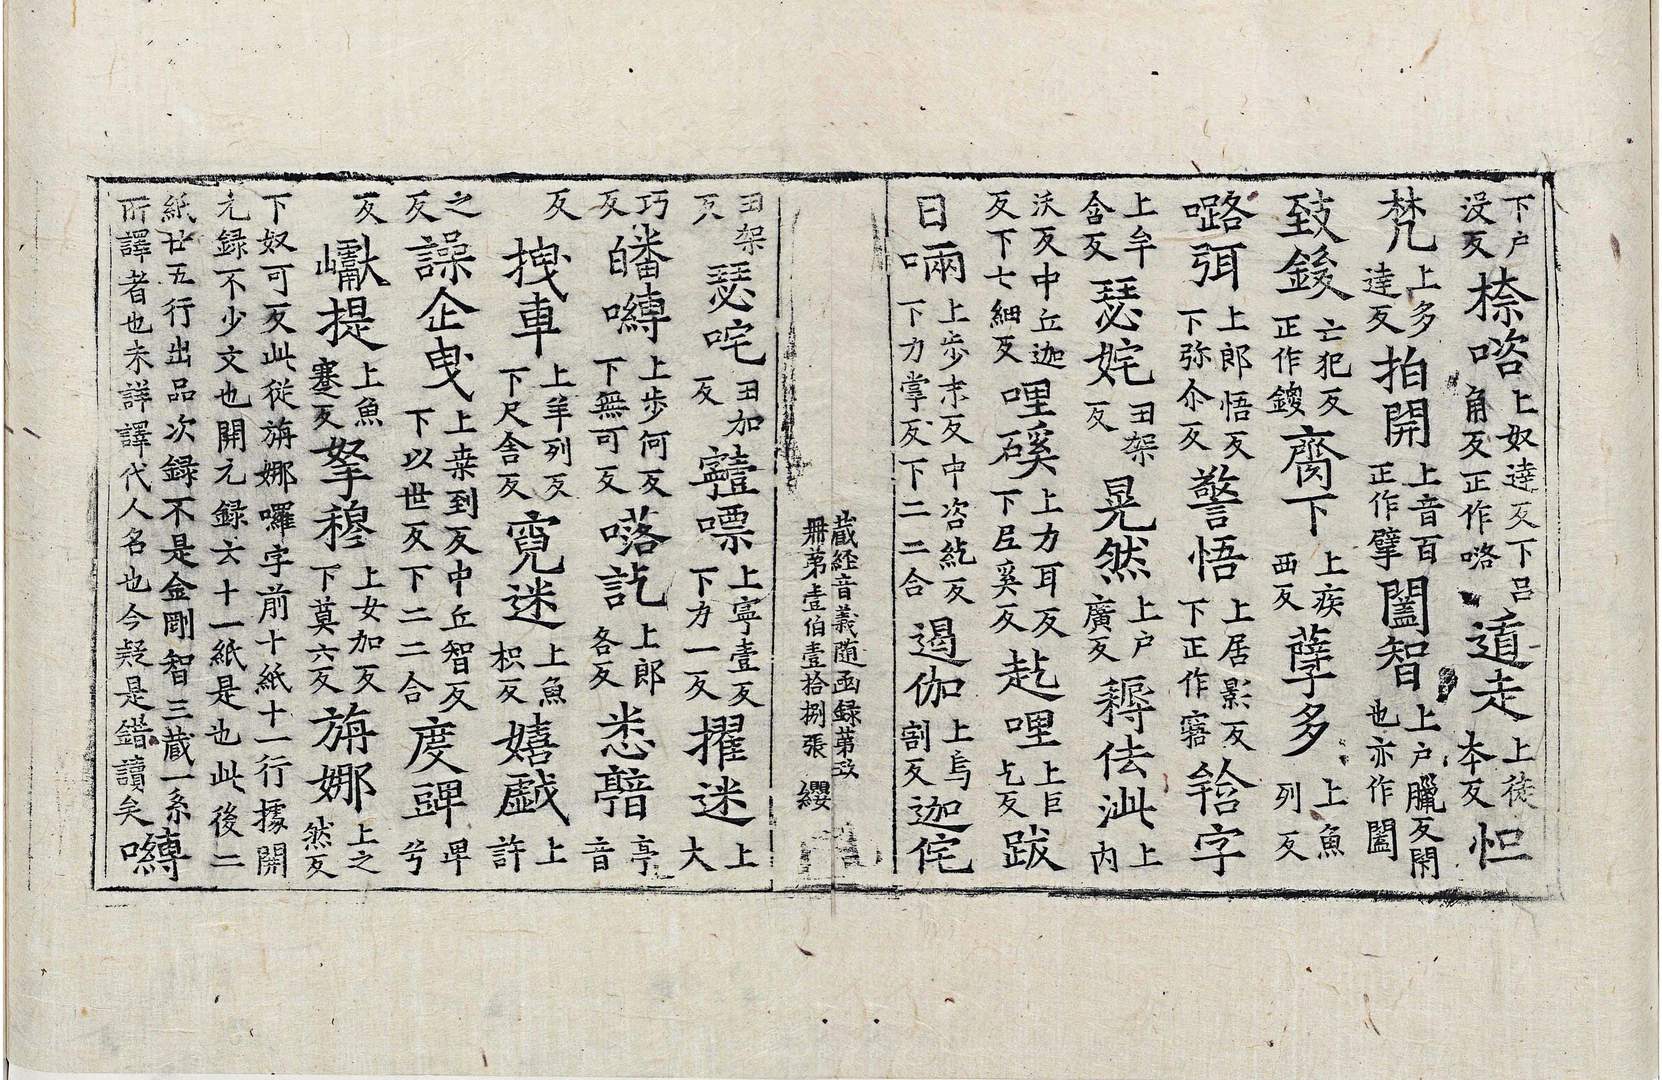 下户没反㮈㗉上奴逹反下吕角反正作㗉遁走上徒夲反怛
梵上多逹反拍開上音百正作擘闔智上户臈反閇也亦作闔
㚇鋄亡犯反正作鑁齊下上疾西反孽多上魚列反
㘾弭上郎悟反下弥尒反警悟上居影反下正作寤䛐字
上牟含反瑟姹丑架反晃然上户廣反耨佉泚上内
沃反中丘迦反下七細反哩磎上力耳反下𠯁奚反赼哩上巨乞反跋
日啢上步末反中咨紇反下力掌反下二二合遏伽上烏割反迦侘
蔵経音義随函録苐玖
冊苐壹伯壹拾捌張　纓
丑架反瑟咤丑加反𭌆嘌上寧壹反下力一反擢迷上大
巧反皤嚩上步何反下無可反㘕訖上郎各反悉𧫦亭音
反拽車上羊列反下尺舎反寛迷上魚枳反嬉戯上許
之反譟企曳上桒到反中丘智反下以世反下二二合度䟾𤰞兮
反巘提上魚蹇反拏穆上女加反下莫六反旃娜上之然反
下奴可反此從旃娜囉字前十紙十一行據開
元録不少文也開元録六十一紙是也此後二
紙廿五行出品次録不是金剛智三蔵一系
所譯者也未詳譯代人名也今疑是錯讀矣嚩